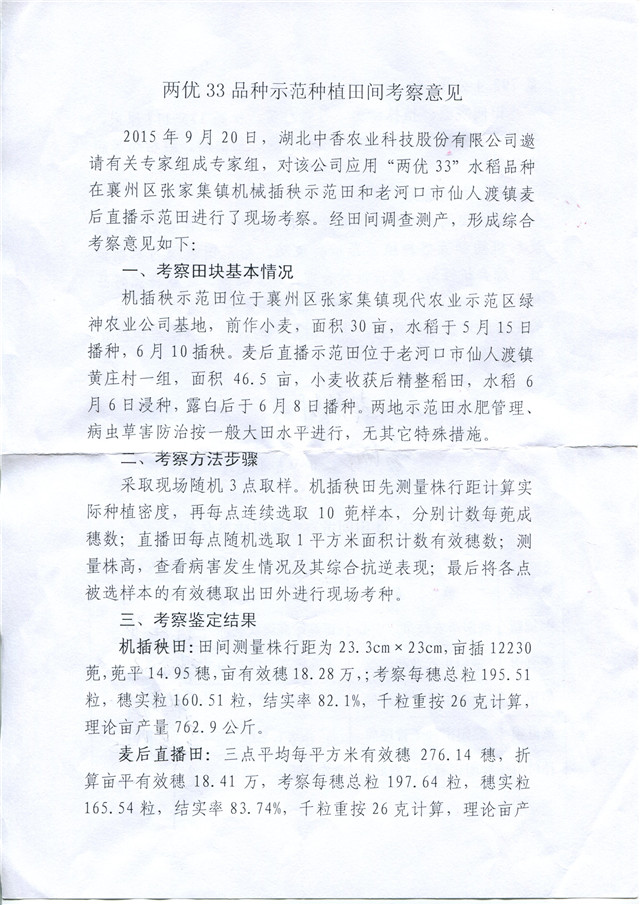 两优 33 品种示范种植田间考察意见
2015 年 9 月 20 日，湖北中香农业科技股份有限公司邀
请有关专家组成专家组，对该公司应用“两优 33”水稻品种
在襄州区张家集镇机械插秧示范田和老河口市仙人渡镇麦
后直播示范田进行了现场考察。经田间调查测产，形成综合
考察意见如下：
一、考察田块基本情况
机插秧示范田位于襄州区张家集镇现代农业示范区绿
神农业公司基地，前作小麦，面积 30 亩，水稻于 5 月 15 日
播种，6 月 10 插秧。麦后直播示范田位于老河口市仙人渡镇
黄庄村一组，面积 46.5 亩，小麦收获后精整稻田，水稻 6
月 6 日浸种，露白后于 6 月 8 日播种。两地示范田水肥管理、
病虫草害防治按一般大田水平进行，无其它特殊措施。
二、考察方法步骤
采取现场随机 3 点取样。机插秧田先测量株行距计算实
际种植密度，再每点连续选取 10 蔸样本，分别计数每蔸成
穗数；直播田每点随机选取 1 平方米面积计数有效穗数；测
量株高，查看病害发生情况及其综合抗逆表现；最后将各点
被选样本的有效穗取出田外进行现场考种。
三、考察鉴定结果
机插秧田：田间测量株行距为 23.3cm×23cm，亩插 12230
蔸，蔸平 14.95 穗，亩有效穗 18.28 万，；考察每穗总粒 195.51
粒，穗实粒 160.51 粒，结实率 82.1%，千粒重按 26 克计算，
理论亩产量 762.9 公斤。
麦后直播田：三点平均每平方米有效穗 276.14 穗，折
算亩平有效穗 18.41 万，考察每穗总粒 197.64 粒，穗实粒
165.54 粒，结实率 83.74%，千粒重按 26 克计算，理论亩产